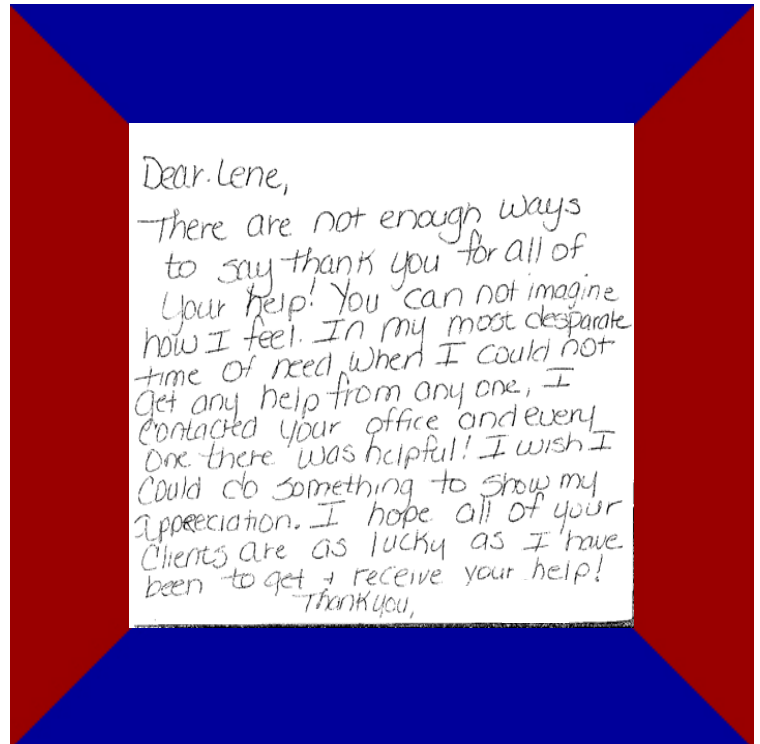 Dear Lene,
There are not enough ways
to say thank you for all of
your help! You can not imagine
how I feel. In my most desparate
time of need when I could not
get any help from any one, I
contacted your office and every
one there was helpful! I wish I
could do something to show my
appreeciation. I hope all of your
clients are as lucky as I have
been to get & receive your help!
Thank you,